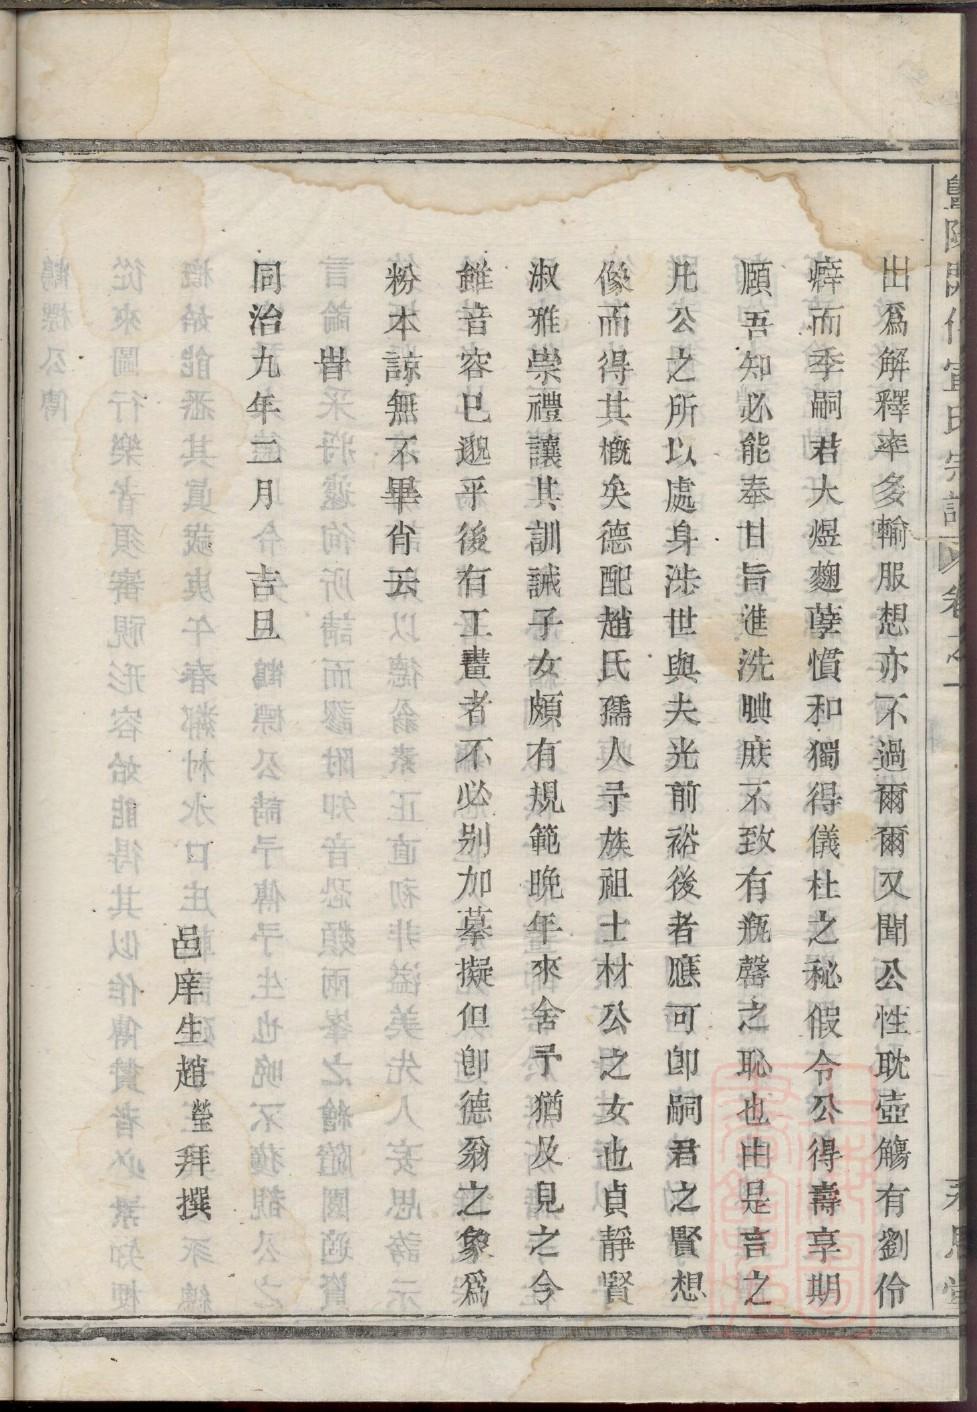 出爲解釋率多輸服想亦不過爾爾又聞公性耽壺觴有劉伶
癖而季嗣君大煜麴孽慣和獨得儀杜之秘假令公得壽享期
頤吾知必能奉甘旨進洗腆庶不致有瓶罄之恥也由是言之
凡公之所以處身涉世與夫光前裕後者應可卽嗣君之賢想
像而得其槪矣德配趙氏孺人予族祖士材公之女也貞靜賢
淑雅崇禮讓其訓誡子女頗有規範晚年來舍予猶及見之今
雖音容已邈乎後有工畫者不必别加摹擬但卽德翁之象爲
粉本諒無不畢肖云
旹
同治九年二月 吉旦
邑庠生趙瑩拜撰
宣氏宗譜 卷之一